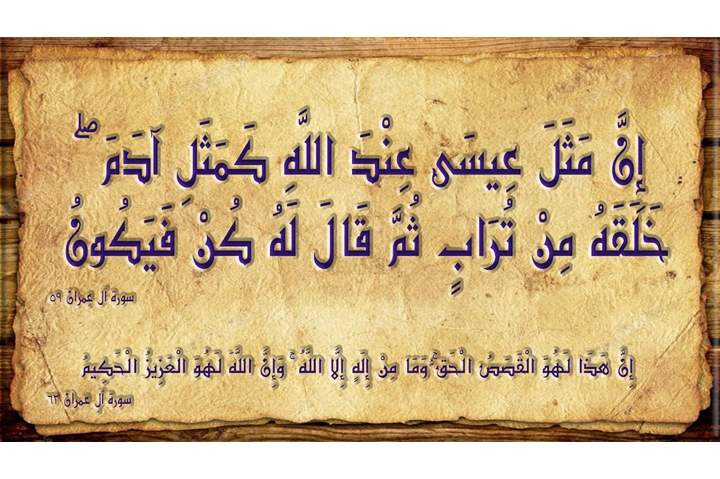 إِنَّ مَثَلَ عِيسَى عِنْدَ اللَّهِ كَمَثَلِ آدَمَ ۖ
خَلَقَهُ مِنْ تُرَابٍ ثُمَّ قَالَ لَهُ كُنْ فَيَكُونُ
سورة آل عمران ٥٩
إِنَّ هَذَا لَهُوَ الْقَصَصُ الْحَقُّ ۚ وَمَا مِنْ إِلَهٍ إِلَّا اللَّهُ ۚ وَإِنَّ اللَّهَ لَهُوَ الْعَزِيزُ الْحَكِيمُ
سورة آل عمران ٦٢